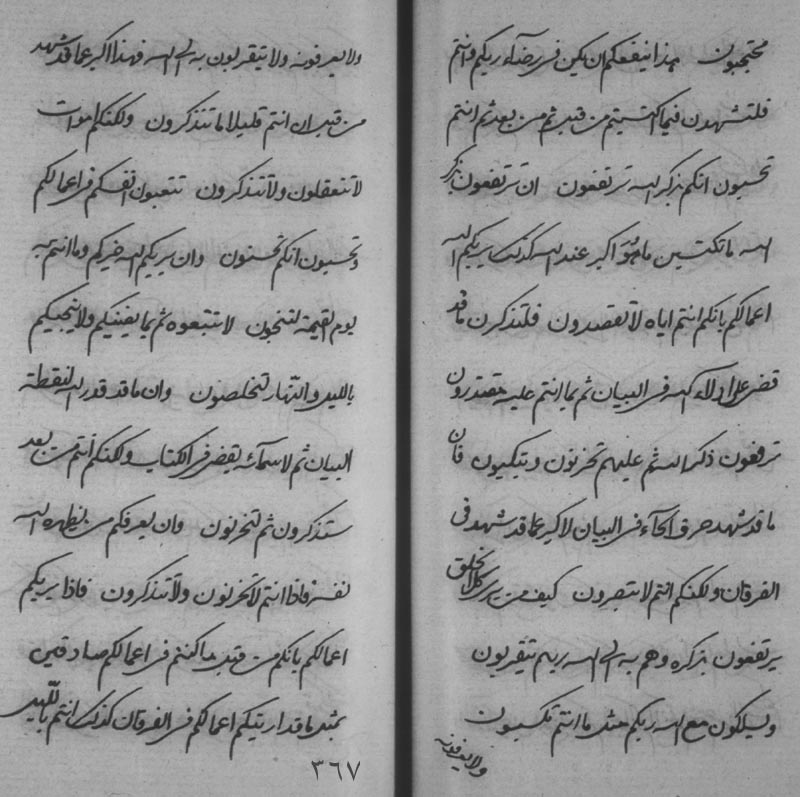 محتجبون هذا ينفعكم ان يكن في رضاء ربكم وانتم
فلتشهدون فيما اكتسبتم من قبل ثم من بعد ثم انتم
تحسبون انكم بذكر الله ترتفعون ان ترتفعون بذكر
الله ما تكتسبن ما هو اكبر عند الله كذلك يريكم الله
اعمالكم بانكم انتم اياه لا تقصدون فلتذكرن ما قد
قضى على ادلاء الله في البيان ثم بما انتم عليه مقتدرون
ترفعون ذكر الله ثم عليهم تحزنون وتبكيون فان
ما قد شهد حرف الحاء في البيان لاكبر عما قد شهد في
الفرقان ولكنكم انتم لا تبصرون كيف من يرى كل الخلق
يرتفعون بذكره وهم به الى الله ربهم يتقربون
وليسلكون مع الله ربكم مثل ما انتم تكسبون
ولا يعرفونه
ولا يعرفونه ولا يتقربون به الى الله فهذا اكبر عما قد شهد
من قبل ان انتم قليلا ما تتذكرون ولكنكم اموات
لا تتعقلون ولا تتذكرون تتعبون انفسكم في اعمالكم
وتحسبون انكم تحسنون وان يريكم الله خيركم وما انتم به
يوم القيمة لتنجون لا تتبعوه ثم بما يغنيكم ولا ينجيكم
بالليل والنهار لتخلصون وان ما قد قدر الله لنقطة
البيان ثم لاسمائه يقضى في الكتاب ولكنكم انتم من بعد
ستذكرون ثم لتحزنون وان يعرفكم من يظهره الله
نفسه فاذا انتم لا تحزنون ولا تتذكرون فاذا يريكم
اعمالكم بانكم من قبل ما كنتم في اعمالكم صادقين
بمثل ما قد اريتكم اعمالكم في الفرقان كذلك انتم بالليل
٣٦٧